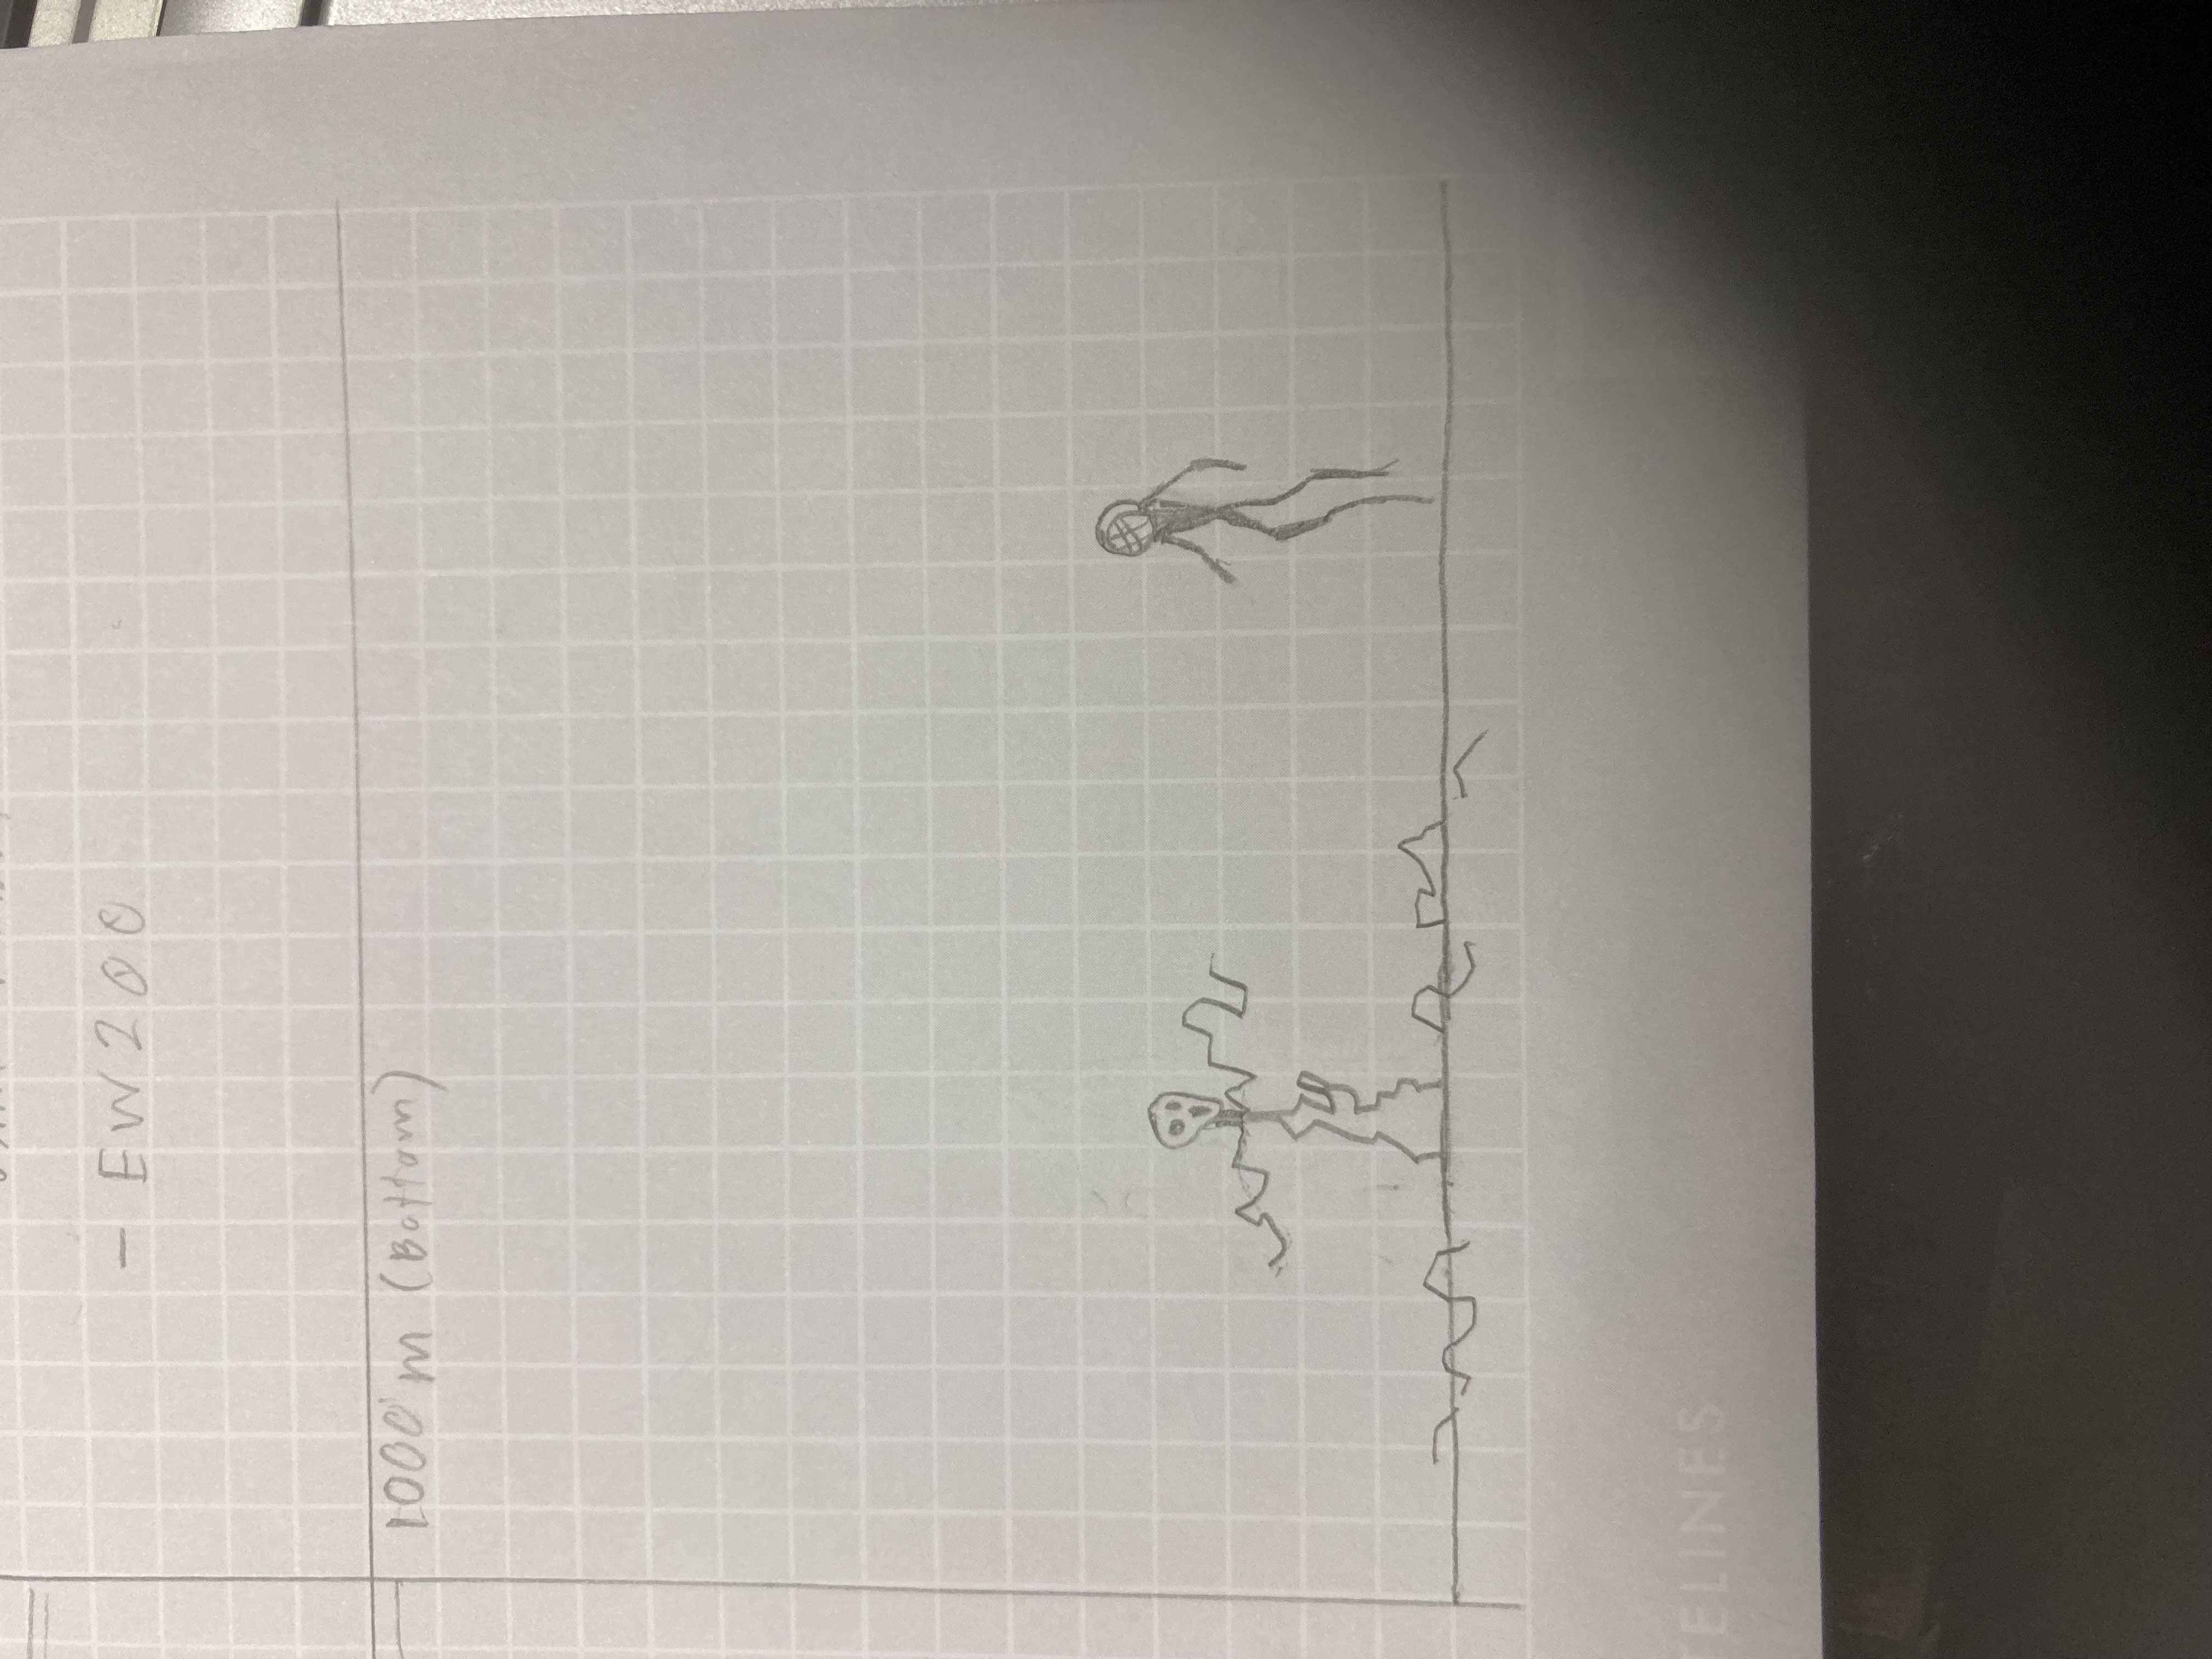 - EW200
1000 m (Bottom)
TELINES